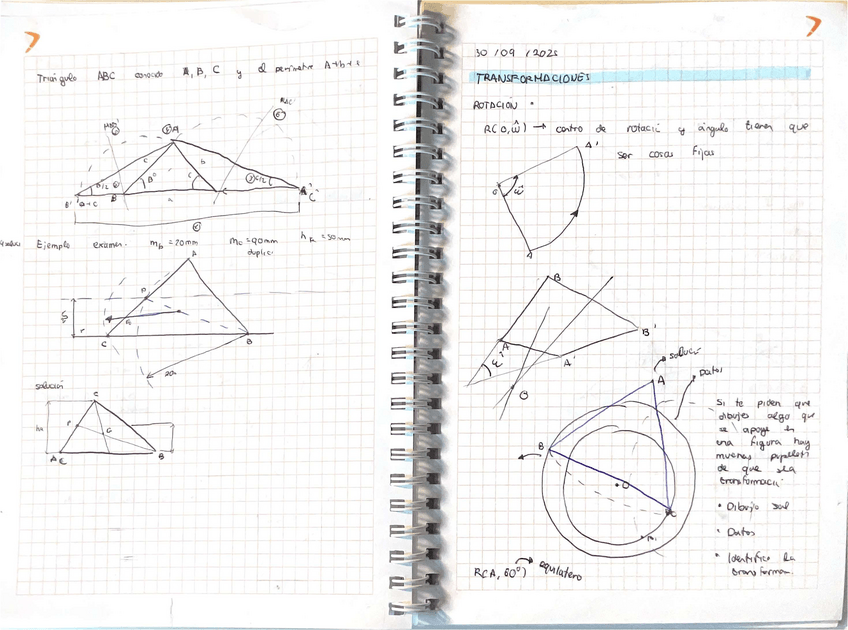 7
Triángulo ABC conocido A, B, C y el perímetro A+b+c
A
c
b
B/2
B°
C
C/2
B'
a+c
B
a
C
C'
Ejemplo examen. mb = 70mm mc = 90mm hA = 50mm
duplic
A
P
r
C
B
solución
C
ha
P
G
B
7
30 / 09 / 2025
TRANSFORMACIONES
ROTACIÓN •
R(O, ŵ) → centro de rotació y ángulo tienen que
ser cosas fijas
A'
O
ŵ
A
B
B'
A
A'
O
solució
Datos
A
B
O
C
Si te piden que
dibujes algo que
se apoye en
una figura hay
muchas papeletas
de que sea
transformació
• Dibujo sol
• Datos
• Identifico la
transforma.
R(A, 60°) → equilatero